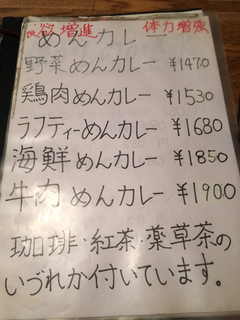 食欲増進 体力増強
めんカレー
野菜めんカレー ¥1470
鶏肉めんカレー ¥1530
ラフティーめんカレー ¥1680
海鮮めんカレー ¥1850
牛肉めんカレー ¥1900
珈琲・紅茶・薬草茶の
いづれか付いています。